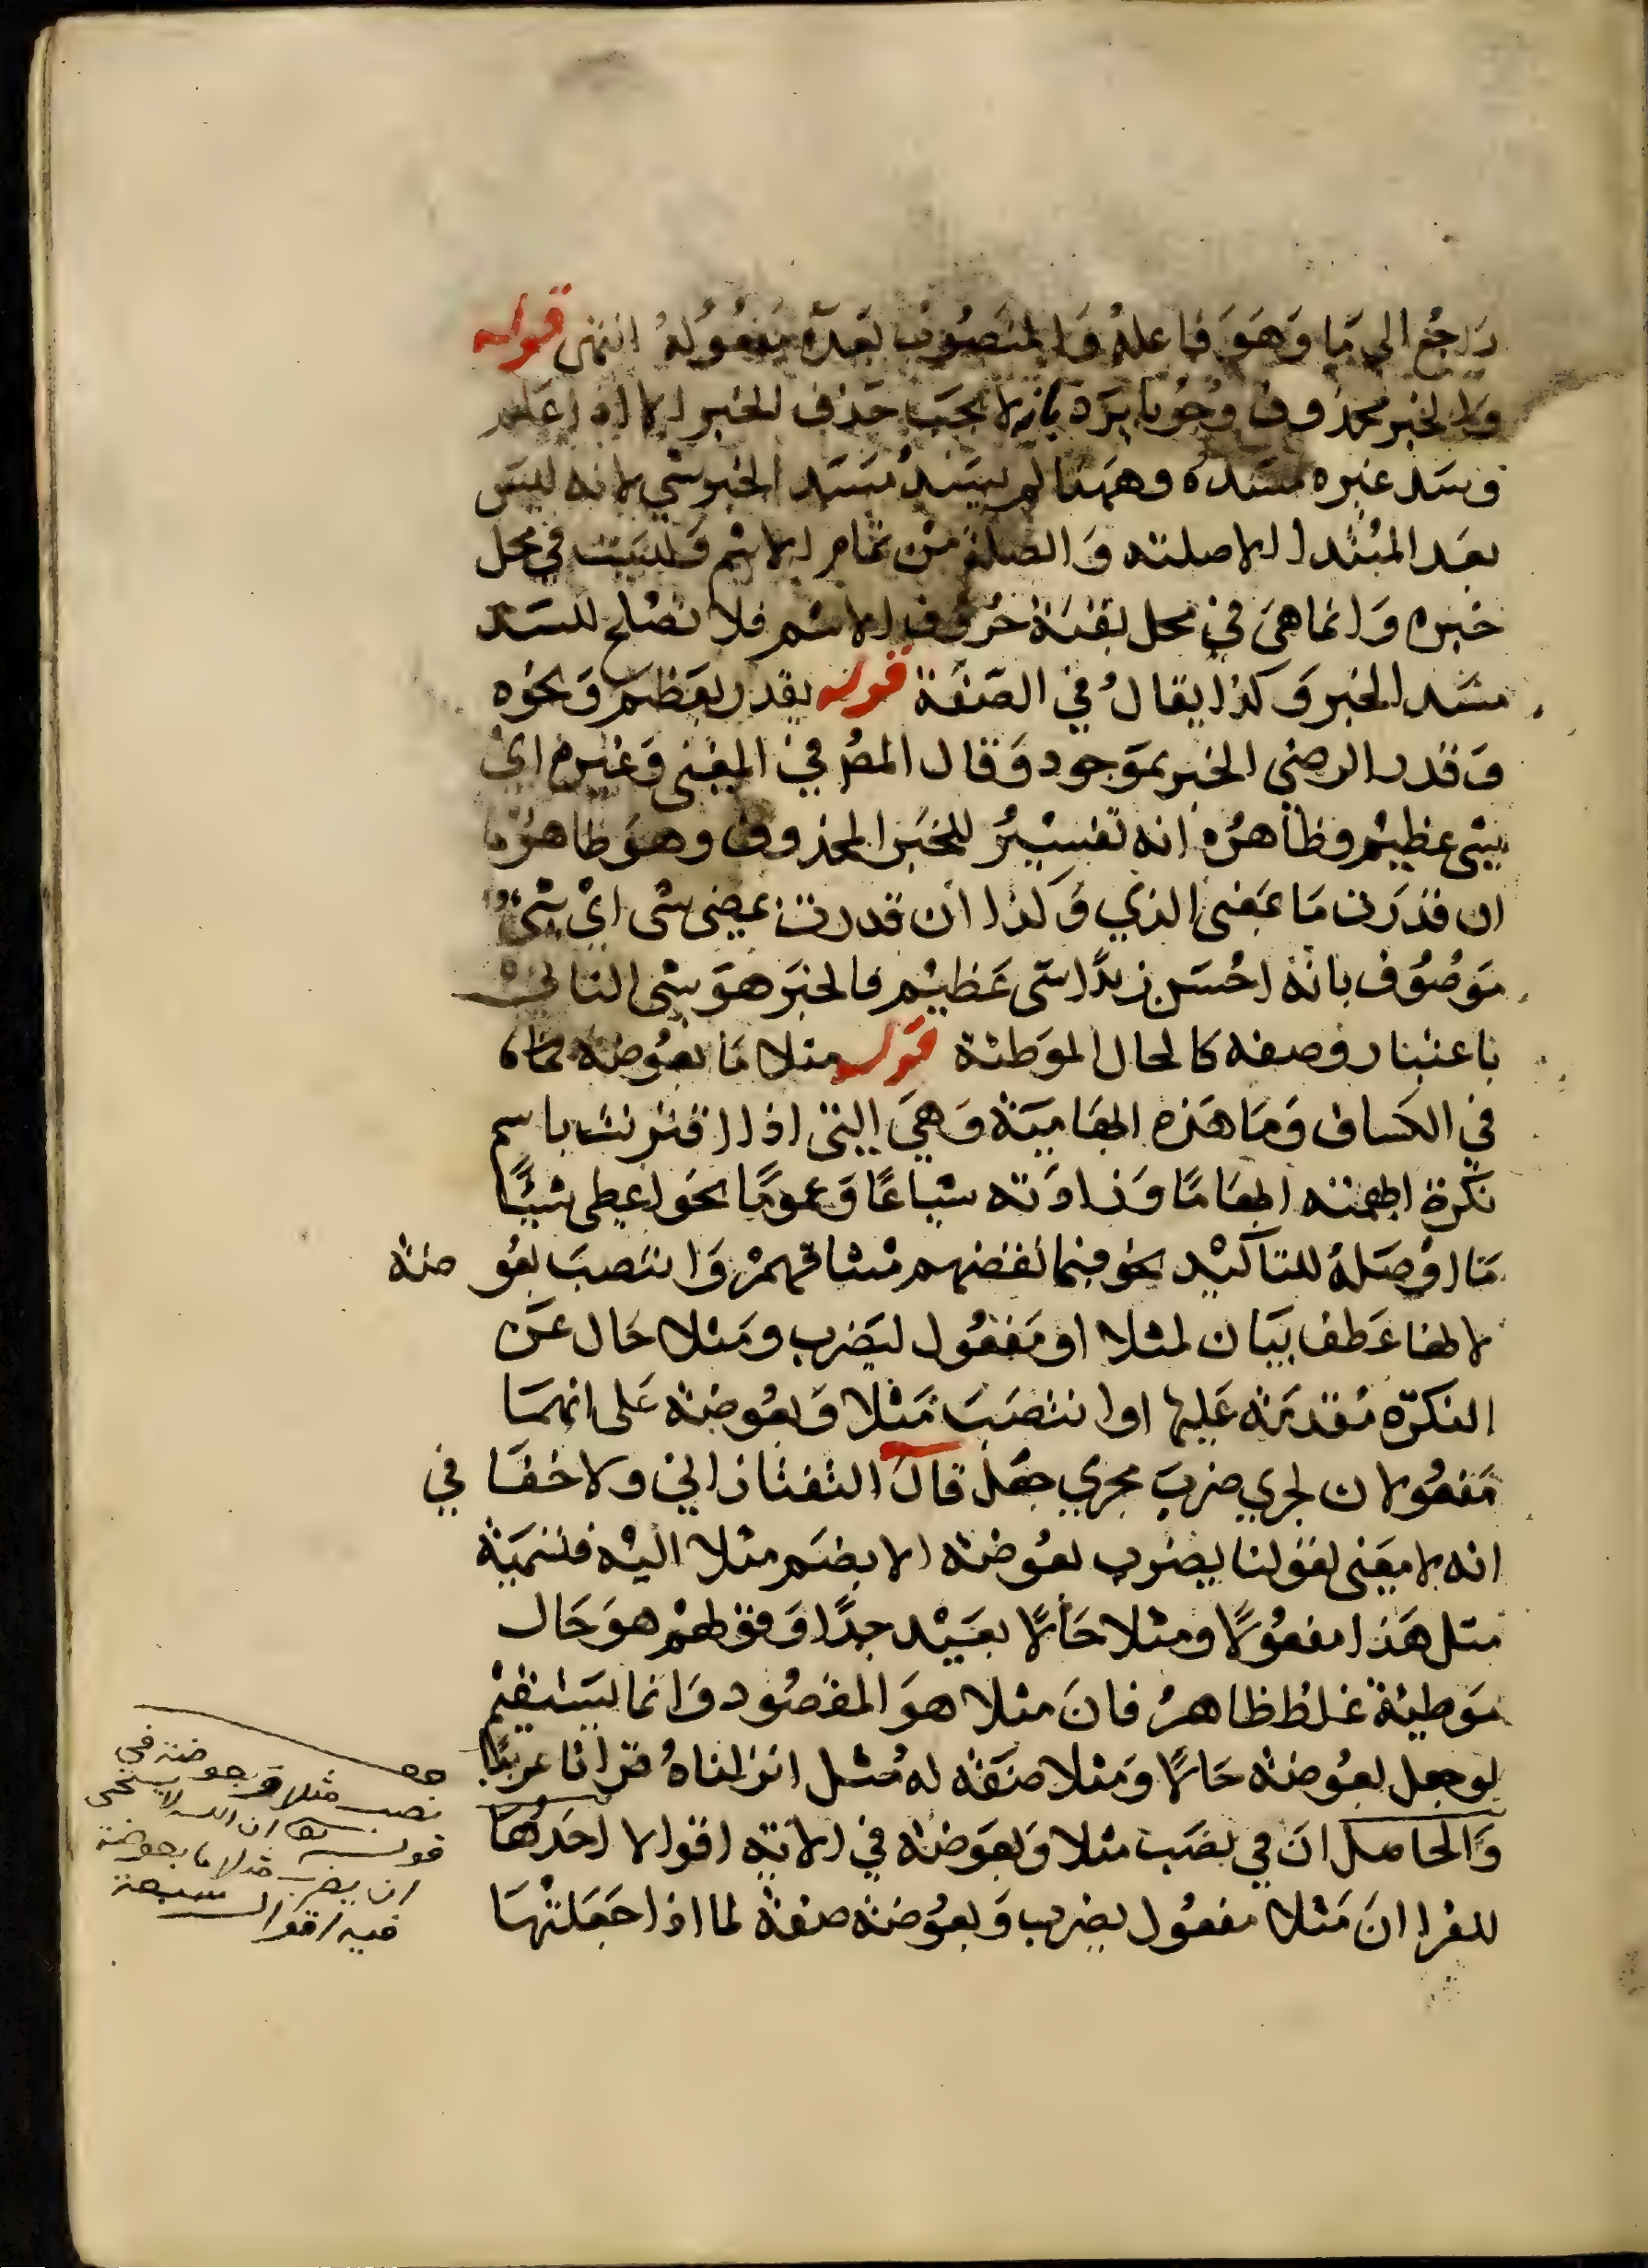 راجع الي ما وهو فاعله والمنصوب بعده مفعوله انتهى قوله
والخبر محذوف وجوبا يرد بانه لا يجب حذف الخبر الا اذا علم
وسد غيره مسده وههنا لم يسد مسد الخبر شي لانه ليس
بعد المبتدا الا صلته والصلة من تمام الاسم وليست في محل
خبره وانما هي في محل بقية حروف الاسم فلا تصلح للسد
مسد الخبر وكذا يقال في الصفة قوله يقدر بعظيم ونحوه
وقدر الرضي الخبر بموجود وقال المص في المغني وغيره اي
شي عظيم وظاهره انه تفسير للخبر المحذوف وهو ظاهر
ان قدرت ما بمعنى الذي وكذا ان قدرت بمعنى شي اي شي
موصوف بانه احسن زيدا شي عظيم فالخبر هو شي الثاني
باعتبار وصفه كالحال الموطئة قوله مثلا ما بعوضة
في الكساف وما هذه ابهامية وهي التي اذا اقترنت باسم
نكرة ابهمته ابهاما وزادته شياعا وعموما نحو اعطي شيًا
ما او صلة للتاكيد نحو فبما نقضهم ميثاقهم وانتصب بعوضة
لانها عطف بيان لمثلا او مفعول ليضرب ومثلا حال عن
النكرة مقدمة عليها او انتصب مثلا وبعوضة على انهما
مفعولان لجري ضرب مجري جعل قال التفتازاني ولا خفا في
انه لا معنى لقولنا يضرب بعوضة الا بضم مثلا اليه فتسمية
مثل هذا مفعولًا ومثلا حالًا بعيد جدًا وقولهم هو حال
موطية غلط ظاهر فان مثلا هو المقصود وانما يستقيم
لو جعل بعوضة حالًا ومثلا صفة له مثل انزلناه قرانا عربيًا
والحاصل ان في نصب مثلا وبعوضة في الاية اقوالا احدها
للفرا ان مثلا مفعول يضرب وبعوضة صفة لما اذا جعلتها
نصب مثلا وبعوضة في
قوله تع ان الله لا يستحى
ان يضرب مثلا ما بعوضة
فيه اقوال سبعة